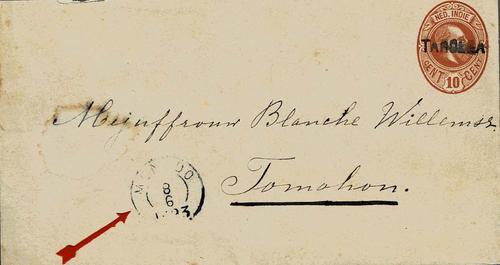 NED. INDIË
TANGELA
CENT 10 CENT
Mejuffrouw Blanche Willemsz
Tomohon.
MENADO
8
6